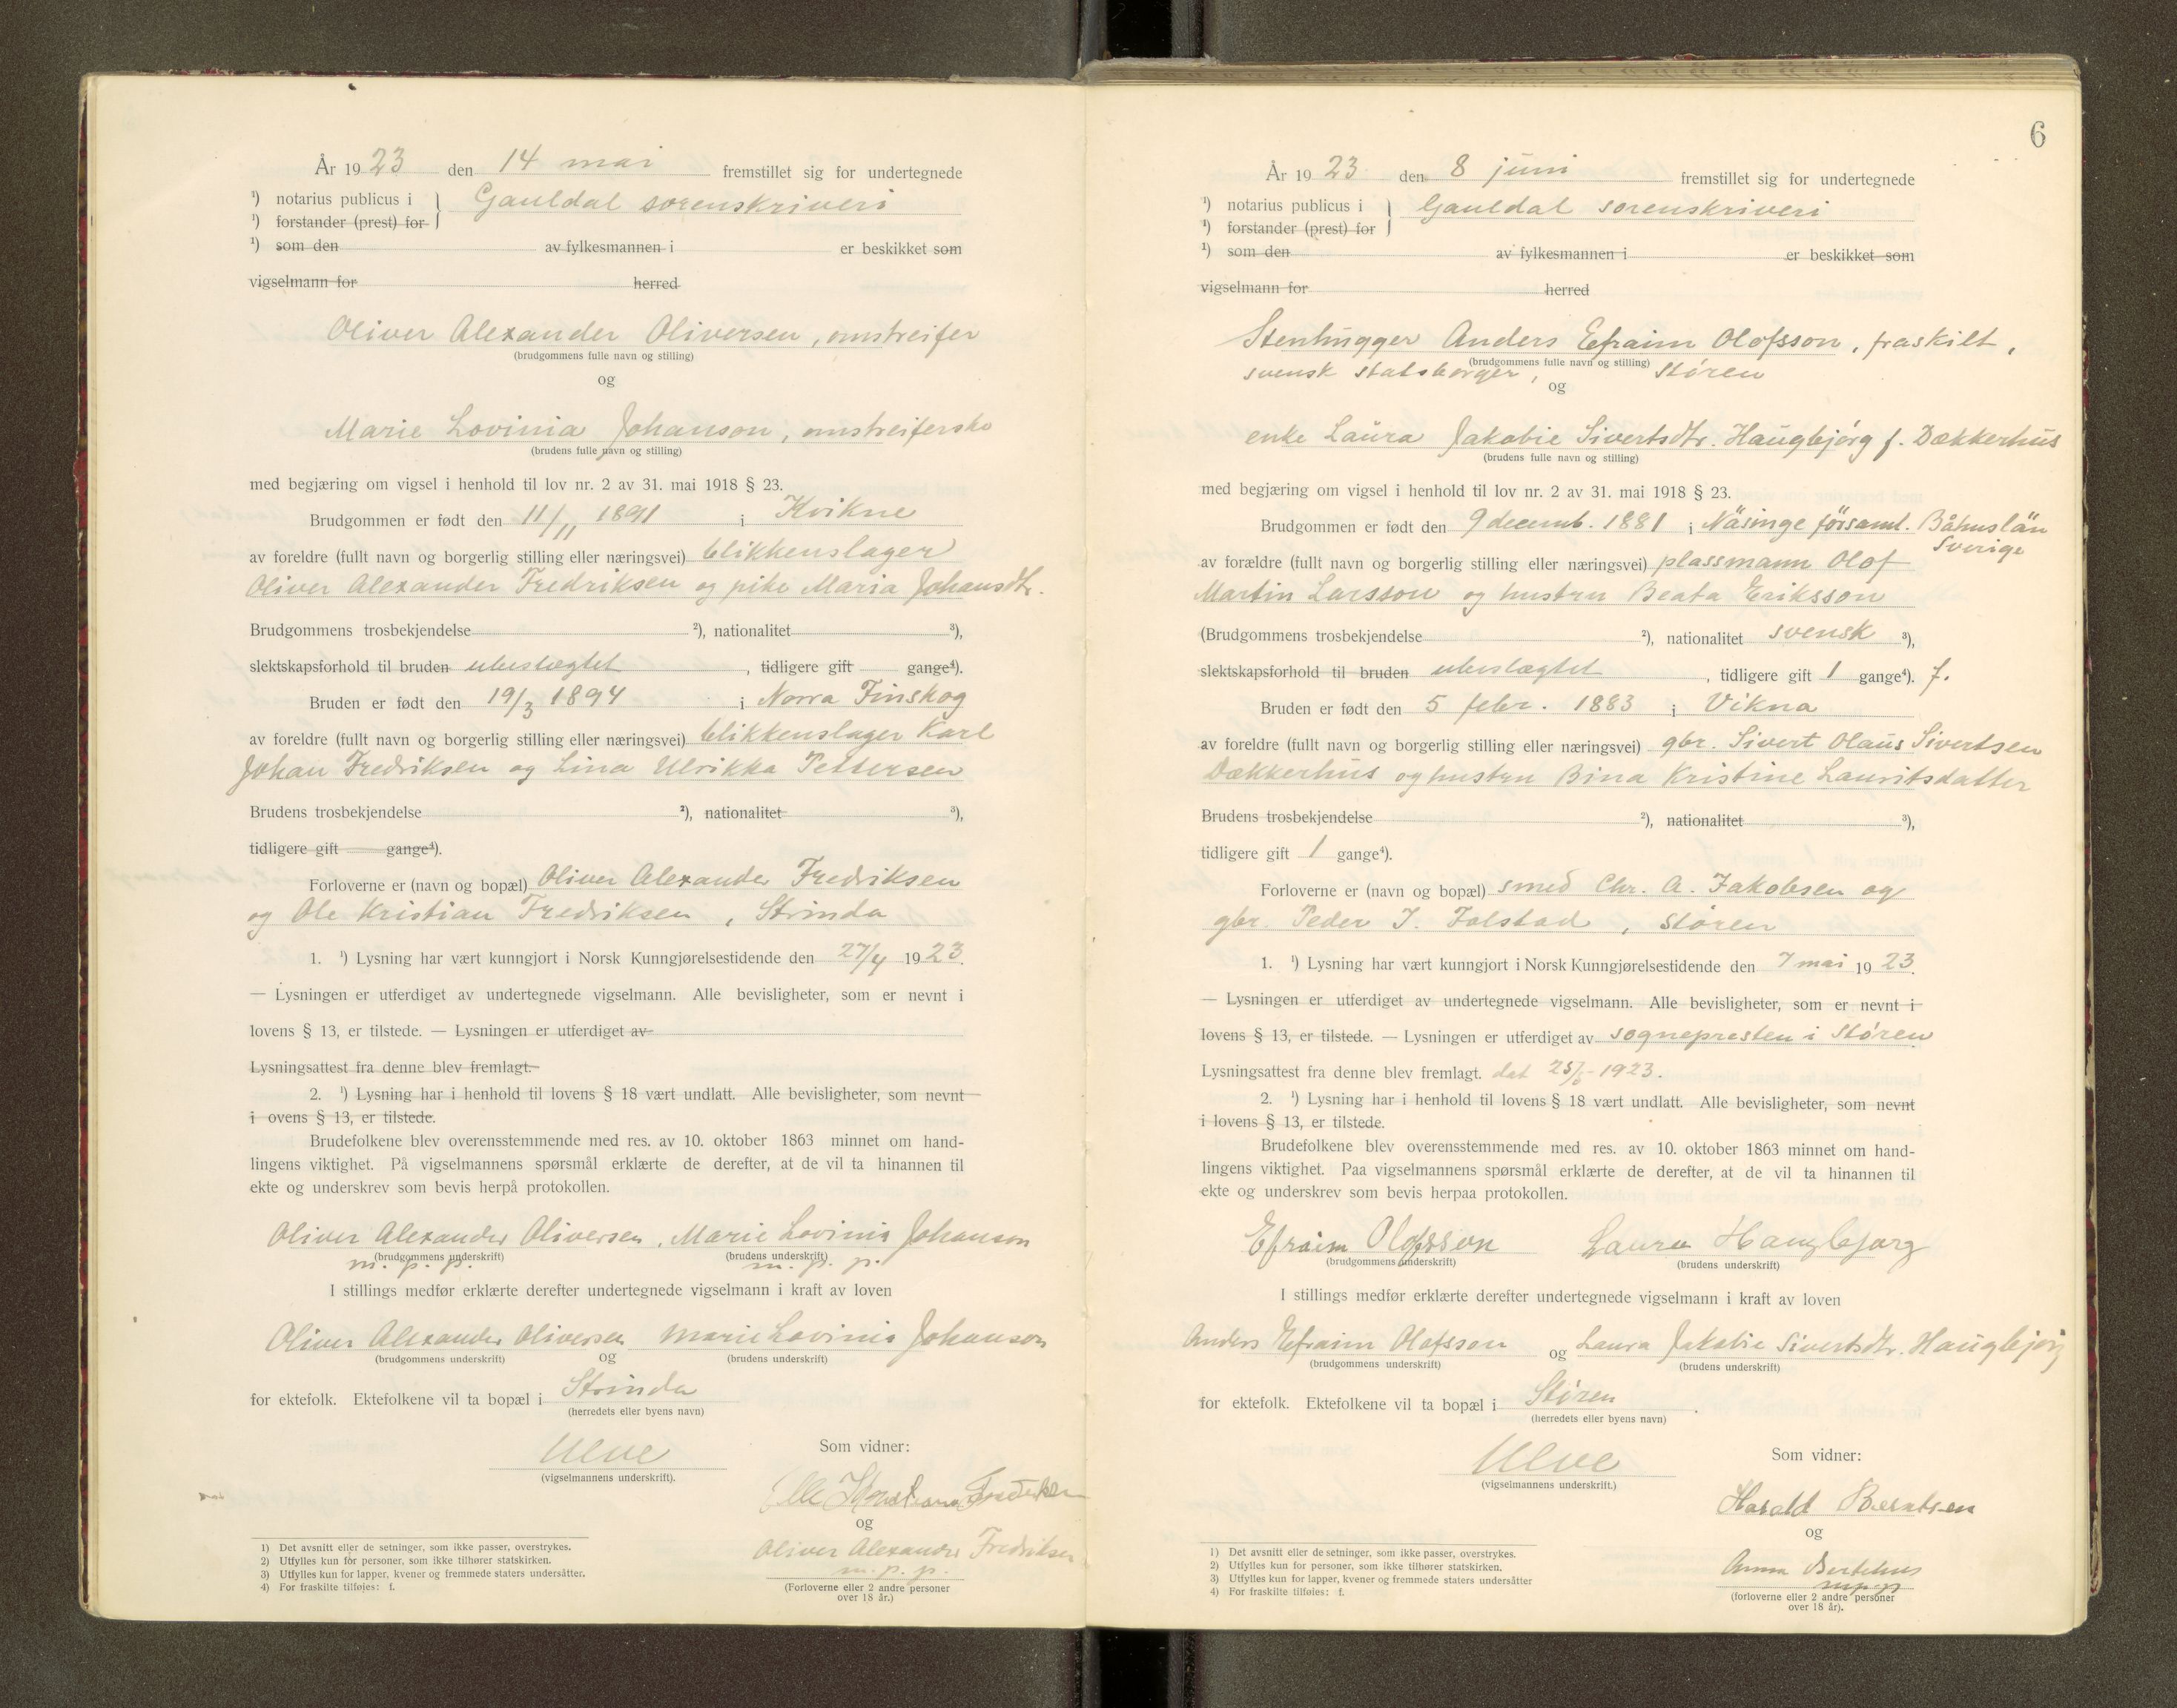 År 1923 den 14 mai fremstillet sig for undertegnede
¹) notarius publicus i } Gauldal sorenskriveri
¹) forstander (prest) for
¹) som den av fylkesmannen i er beskikket som
vigselmann for herred
Oliver Alexander Oliversen, omstreifer
(brudgommens fulle navn og stilling)
og
Marie Lovinia Johanson, omstreiferske
(brudens fulle navn og stilling)
med begjæring om vigsel i henhold til lov nr. 2 av 31. mai 1918 § 23.
Brudgommen er født den 11/11 1891 i Kvikne
av foreldre (fullt navn og borgerlig stilling eller næringsvei) blikkenslager
Oliver Alexander Fredriksen og pike Maria Johansdtr.
Brudgommens trosbekjendelse ²), nationalitet ³),
slektskapsforhold til bruden ubeslægtet, tidligere gift gange⁴).
Bruden er født den 19/3 1894 i Norra Finskog
av foreldre (fullt navn og borgerlig stilling eller næringsvei) blikkenslager Karl
Johan Fredriksen og Lina Ulrikka Pettersen
Brudens trosbekjendelse ²), nationalitet ³),
tidligere gift gange⁴).
Forloverne er (navn og bopæl) Oliver Alexander Fredriksen
og Ole Kristian Fredriksen, Strinda
1. ¹) Lysning har vært kunngjort i Norsk Kunngjørelsestidende den 27/4 1923.
— Lysningen er utferdiget av undertegnede vigselmann. Alle bevisligheter, som er nevnt i
lovens § 13, er tilstede. — Lysningen er utferdiget av
Lysningsattest fra denne blev fremlagt.
2. ¹) Lysning har i henhold til lovens § 18 vært undlatt. Alle bevisligheter, som nevnt
i ovens § 13, er tilstede.
Brudefolkene blev overensstemmende med res. av 10. oktober 1863 minnet om hand-
lingens viktighet. På vigselmannens spørsmål erklærte de derefter, at de vil ta hinannen til
ekte og underskrev som bevis herpå protokollen.
Oliver Alexander Oliversen. Marie Lovinia Johanson
(brudgommens underskrift) (brudens underskrift)
m. p. p. m. p. p.
I stillings medfør erklærte derefter undertegnede vigselmann i kraft av loven
Oliver Alexander Oliversen Marie Lovinia Johanson
(brudgommens underskrift) og (brudens underskrift)
for ektefolk. Ektefolkene vil ta bopæl i Strinda
(herredets eller byens navn)
Ulve
(vigselmannens underskrift).
Som vidner:
Fredriksen
og
Oliver Alexander Fredriksen
m. p. p.
(Forloverne eller 2 andre personer
over 18 år.)
1) Det avsnitt eller de setninger, som ikke passer, overstrykes.
2) Utfylles kun for personer, som ikke tilhører statskirken.
3) Utfylles kun for lapper, kvener og fremmede staters undersåtter.
4) For fraskilte tilføies: f.
6
År 1923 den 8 juni fremstillet sig for undertegnede
¹) notarius publicus i } Gauldal sorenskriveri
¹) forstander (prest) for
¹) som den av fylkesmannen i er beskikket som
vigselmann for herred
Stenhugger Anders Efraim Olofsson, fraskilt,
(brudgommens fulle navn og stilling)
svensk statsborger, Støren
og
enke Laura Jakobie Sivertsdtr. Haugbjørg f. Dækkerhus
(brudens fulle navn og stilling)
med begjæring om vigsel i henhold til lov nr. 2 av 31. mai 1918 § 23.
Brudgommen er født den 9 decemb. 1881 i Näsinge församl. Båhuslän
Sverige
av forældre (fullt navn og borgerlig stilling eller næringsvei) plassmann Olof
Martin Larsson og hustru Beata Eriksson
(Brudgommens trosbekjendelse ²), nationalitet svensk ³),
slektskapsforhold til bruden ubeslægtet, tidligere gift 1 gange⁴). f.
Bruden er født den 5 febr. 1883 i Vikna
av foreldre (fullt navn og borgerlig stilling eller næringsvei) gbr. Sivert Olaus Sivertsen
Dækkerhus og hustru Bina Kristine Lauritsdatter
Brudens trosbekjendelse ²), nationalitet ³),
tidligere gift 1 gange⁴).
Forloverne er (navn og bopæl) smed Chr. A. Jakobsen og
gbr. Peder J. Folstad, Støren
1. ¹) Lysning har vært kunngjort i Norsk Kunngjørelsestidende den 7 mai 1923.
— Lysningen er utferdiget av undertegnede vigselmann. Alle bevisligheter, som er nevnt i
lovens § 13, er tilstede. — Lysningen er utferdiget av sognepresten i Støren
Lysningsattest fra denne blev fremlagt. dat 25/5-1923.
2. ¹) Lysning har i henhold til lovens § 18 vært undlatt. Alle bevisligheter, som nevnt
i lovens § 13, er tilstede.
Brudefolkene blev overensstemmende med res. av 10. oktober 1863 minnet om hand-
lingens viktighet. Paa vigselmannens spørsmål erklærte de derefter, at de vil ta hinannen til
ekte og underskrev som bevis herpaa protokollen.
Efraim Olofsson Laura Haugbjørg
(brudgommens underskrift) (brudens underskrift)
I stillings medfør erklærte derefter undertegnede vigselmann i kraft av loven
Anders Efraim Olofsson og Laura Jakobie Sivertsdtr. Haugbjørg
(brudgommens underskrift) (brudens underskrift)
for ektefolk. Ektefolkene vil ta bopæl i Støren.
(herredets eller byens navn)
Ulve
(vigselmannens underskrift.)
Som vidner:
Harald Berntsen
og
Anna
mpp
(forloverne eller 2 andre personer
over 18 år).
1) Det avsnitt eller de setninger, som ikke passer, overstrykes.
2) Utfylles kun for personer, som ikke tilhører statskirken.
3) Utfylles kun for lapper, kvener og fremmede staters undersåtter
4) For fraskilte tilføies: f.